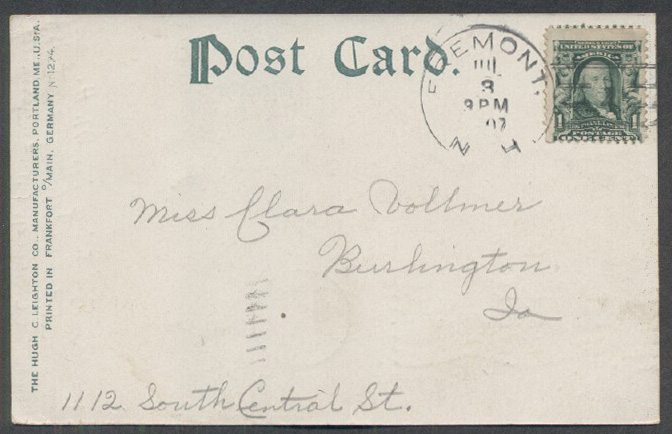 Post Card.
FREMONT.
JUL
3
9 PM
07
N H
UNITED STATES OF
AMERICA
1 1
POSTAGE
Miss Clara Vollmer
Burlington
Ia
1112 South Central St.
THE HUGH C LEIGHTON CO., MANUFACTURERS, PORTLAND, ME., U.S.A.
PRINTED IN FRANKFORT O/MAIN, GERMANY